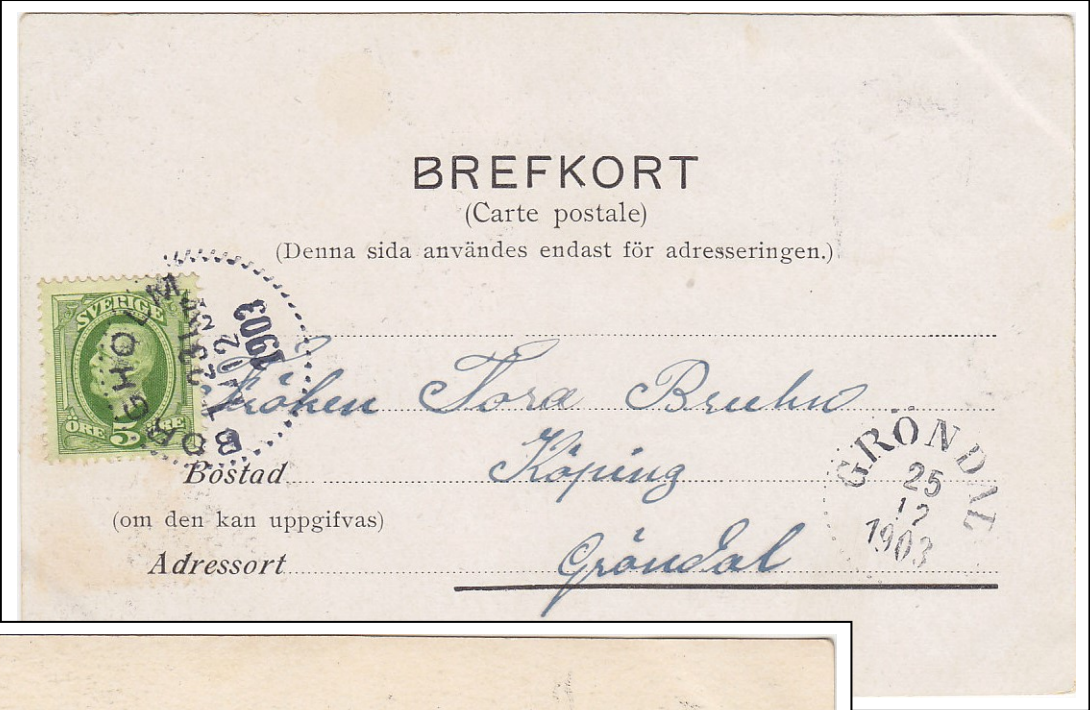 BREFKORT
(Carte postale)
(Denna sida användes endast för adresseringen.)
SVERIGE
ÖRE 5 ÖRE
BORGHOLM
1903
Fröken Tora Bruhn
Bostad Köping
(om den kan uppgifvas)
Adressort Gröndal
GRÖNDAL
25
12
1903